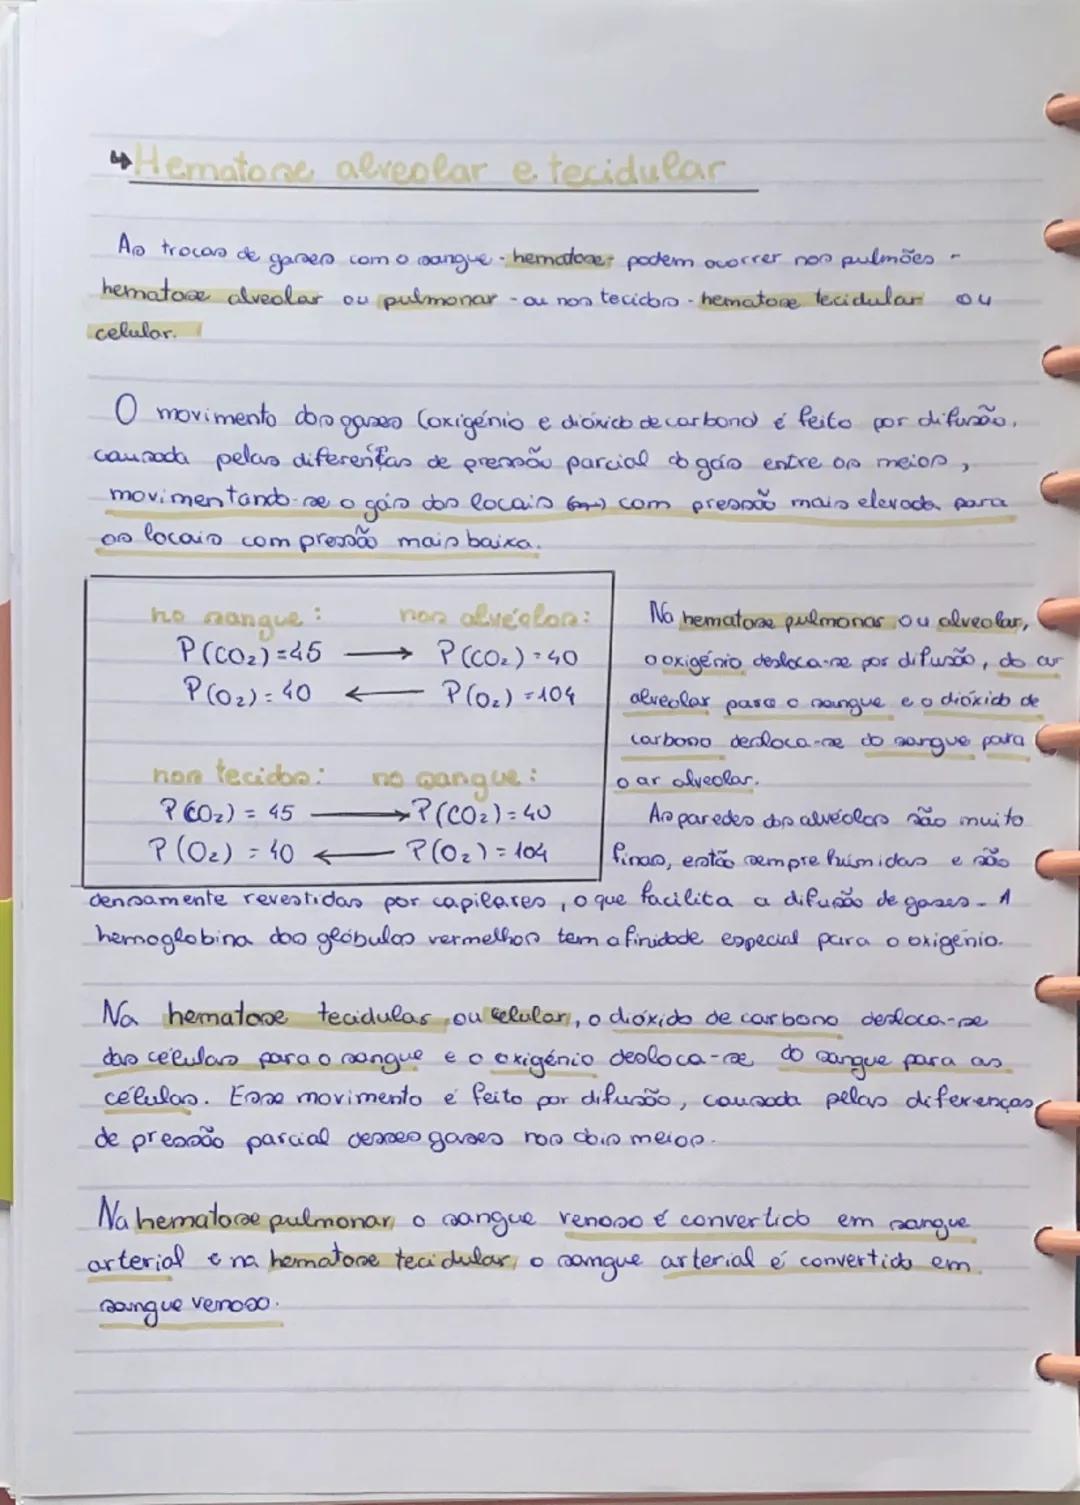 ↳Hematose alveolar e tecidular
As trocas de gases com o sangue - hematose - podem ocorrer nos pulmões -
hematose alveolar ou pulmonar - ou nos tecidos - hematose tecidular ou
celular.
O movimento dos gases (oxigénio e dióxido de carbono) é feito por difusão,
causada pelas diferenças de pressão parcial do gás entre os meios,
movimentando-se o gás dos locais com pressão mais elevada para
os locais com pressão mais baixa.
no sangue: nos alvéolos:
P(CO₂)=45 → P(CO₂)=40
P(O₂)=40 ← P(O₂)=104
nos tecidos: no sangue:
P(CO₂) = 45 → P(CO₂)=40
P(O₂) = 40 ← P(O₂)=104
Na hematose pulmonar ou alveolar,
o oxigénio desloca-se por difusão, do ar
alveolar para o sangue e o dióxido de
carbono desloca-se do sangue para
o ar alveolar.
As paredes dos alvéolos são muito
finas, estão sempre húmidas e são
densamente revestidas por capilares, o que facilita a difusão de gases. A
hemoglobina dos glóbulos vermelhos tem afinidade especial para o oxigénio.
Na hematose tecidular, ou celular, o dióxido de carbono desloca-se
das células para o sangue e o oxigénio desloca-se do sangue para as
células. Esse movimento é feito por difusão, causada pelas diferenças
de pressão parcial desses gases nos dois meios.
Na hematose pulmonar, o sangue venoso é convertido em sangue
arterial e na hematose tecidular, o sangue arterial é convertido em
sangue venoso.